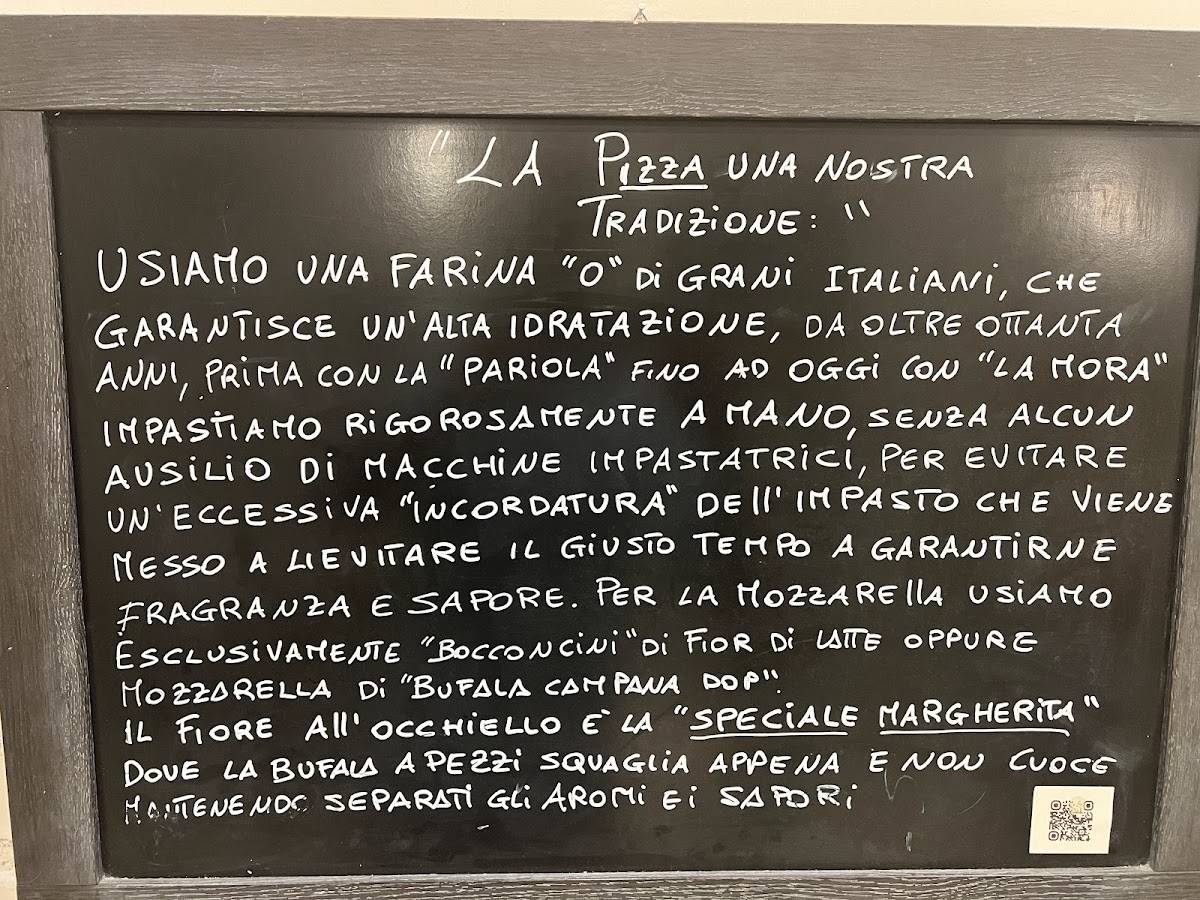 "LA PIZZA UNA NOSTRA
TRADIZIONE: "
USIAMO UNA FARINA "0" DI GRANI ITALIANI, CHE
GARANTISCE UN'ALTA IDRATAZIONE, DA OLTRE OTTANTA
ANNI, PRIMA CON LA "PARIOLA" FINO AD OGGI CON "LA MORA"
IMPASTIAMO RIGOROSAMENTE A MANO, SENZA ALCUN
AUSILIO DI MACCHINE IMPASTATRICI, PER EVITARE
UN'ECCESSIVA "INCORDATURA" DELL'IMPASTO CHE VIENE
MESSO A LIEVITARE IL GIUSTO TEMPO A GARANTIRNE
FRAGRANZA E SAPORE. PER LA MOZZARELLA USIAMO
ESCLUSIVAMENTE "BOCCONCINI" DI FIOR DI LATTE OPPURE
MOZZARELLA DI "BUFALA CAMPANA DOP".
IL FIORE ALL'OCCHIELLO È LA "SPECIALE MARGHERITA"
DOVE LA BUFALA A PEZZI SQUAGLIA APPENA E NON CUOCE
MANTENENDO SEPARATI GLI AROMI E I SAPORI